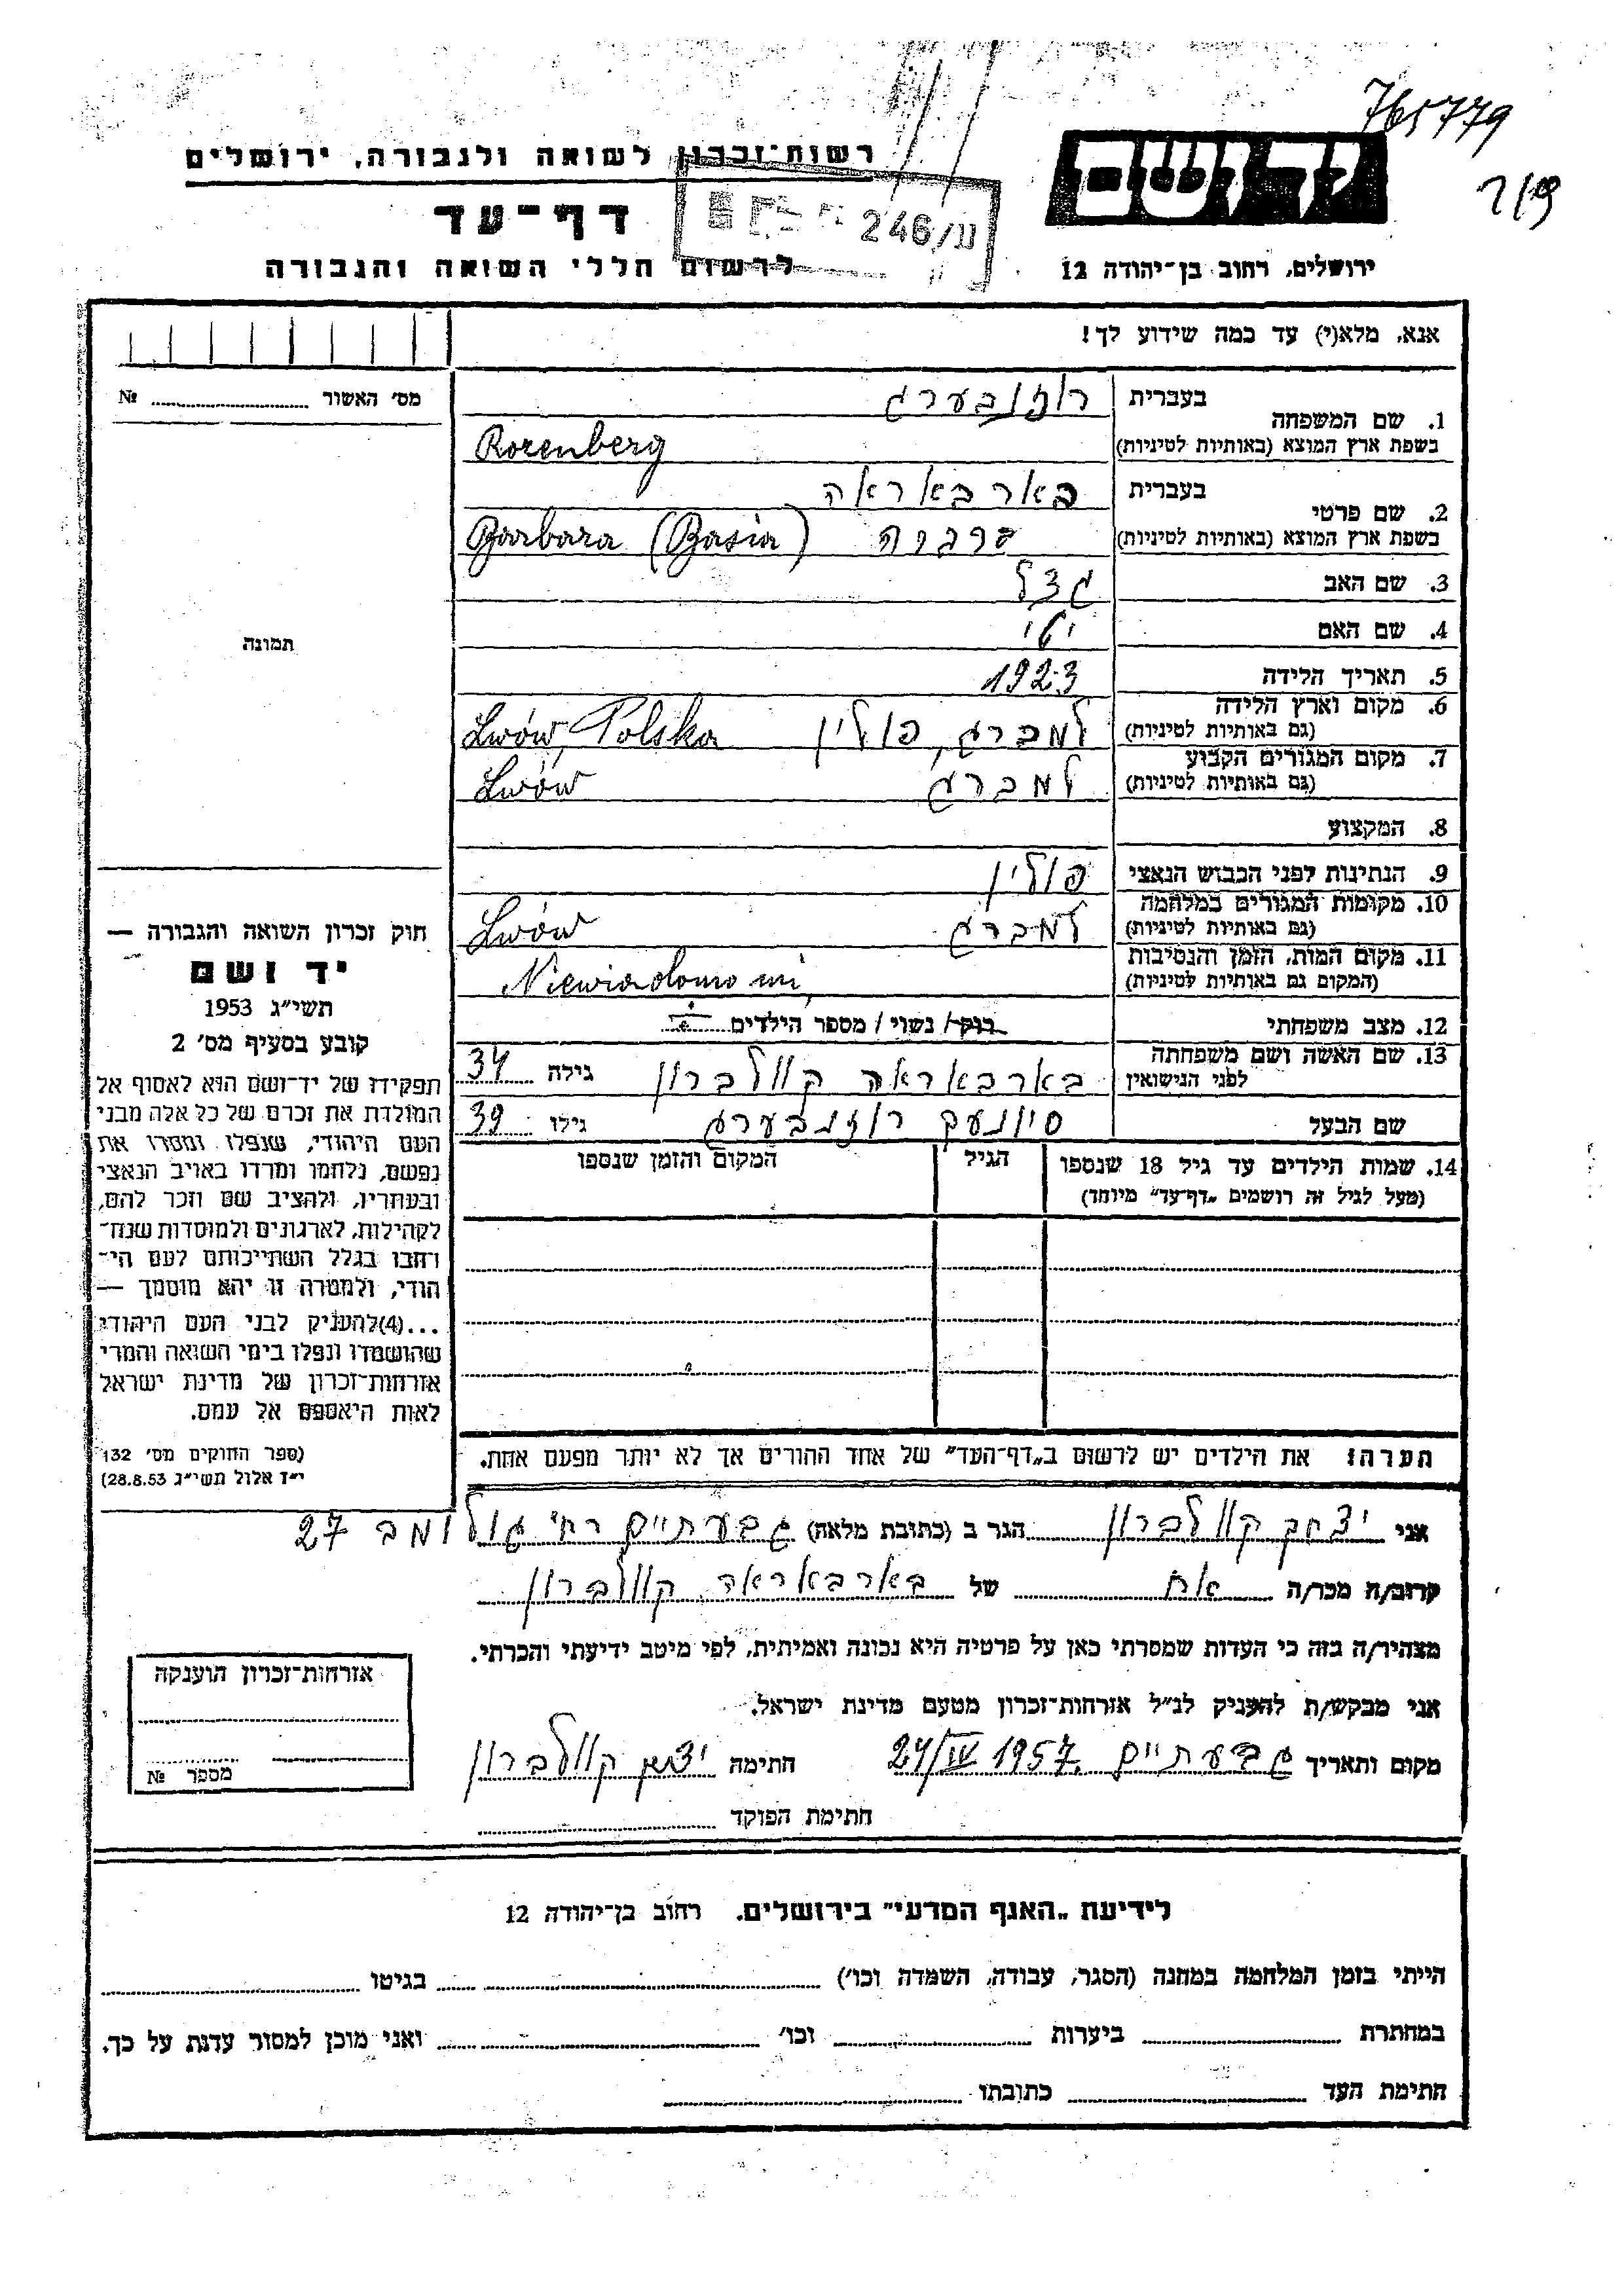 765779
רשות־זכרון לשואה ולגבורה, ירושלים
יד ושם
דף־עד
246/ננ
לרשום חללי השואה והגבורה
ירושלים, רחוב בן־יהודה 12
אנא, מלא(י) עד כמה שידוע לך!
מס' האשור ........ №
תמונה
חוק זכרון השואה והגבורה —
יד ושם
תשי"ג 1953
קובע בסעיף מס' 2
תפקידו של יד־ושם הוא לאסוף אל
המולדת את זכרם של כל אלה מבני
העם היהודי, שנפלו ומסרו את
נפשם, נלחמו ומרדו באויב הנאצי
ובעוזריו, ולהציב שם וזכר להם,
לקהילות, לארגונים ולמוסדות שנח־
רחבו בגלל השתייכותם לעם הי־
הודי, ולמטרה זו יהא מוסמך —
...(4) להעניק לבני העם היהודי
שהושמדו ונפלו בימי השואה והמרי
אזרחות־זכרון של מדינת ישראל
לאות היאספם אל עמם.
(ספר החוקים מס' 132
י"ז אלול תשי"ג 28.8.53)
1. שם המשפחה בעברית רוזנבערג
בשפת ארץ המוצא (באותיות לטיניות) Rozenberg
2. שם פרטי בעברית בארבאראה
בשפת ארץ המוצא (באותיות לטיניות) ברברה Barbara (Basia)
3. שם האב גצל
4. שם האם יטי
5. תאריך הלידה 1923
6. מקום וארץ הלידה (גם באותיות לטיניות) למברג, פולין Lwów, Polska
7. מקום המגורים הקבוע (גם באותיות לטיניות) למברג Lwów
8. המקצוע
9. הנתינות לפני הכבוש הנאצי פולין
10. מקומות המגורים במלחמה (גם באותיות לטיניות) למברג Lwów
11. מקום המות, הזמן והנסיבות (המקום גם באותיות לטיניות) Niewiadomo mi
12. מצב משפחתי רוק / נשוי / מספר הילדים
13. שם האשה ושם משפחתה לפני הנישואין בארבאראה קוולברון גילה 34
שם הבעל רוזנבערג גילו 39
14. שמות הילדים עד גיל 18 שנספו הגיל המקום והזמן שנספו
(מעל לגיל זה רושמים „דף־עד" מיוחד)
הערה: את הילדים יש לרשום ב„דף־העד" של אחד ההורים אך לא יותר מפעם אחת.
אני יצחק קוולברון הגר ב (כתובת מלאה) גבעתיים רח' גולומב 27
קרוב/ה מכר/ה אח של בארבאראה קוולברון
מצהיר/ה בזה כי העדות שמסרתי כאן על פרטיה היא נכונה ואמיתית, לפי מיטב ידיעתי והכרתי.
אני מבקש/ת להעניק לנ"ל אזרחות־זכרון מטעם מדינת ישראל.
מקום ותאריך גבעתיים 24/IV 1957. חתימה יצחק קוולברון
חתימת הפוקד
אזרחות־זכרון הוענקה
מספר №
לידיעת „האגף המדעי" בירושלים. רחוב בן־יהודה 12
הייתי בזמן המלחמה במחנה (הסגר, עבודה, השמדה וכו') בגיטו
במחתרת ביערות וכו' ואני מוכן למסור עדות על כך.
חתימת העד כתובתו